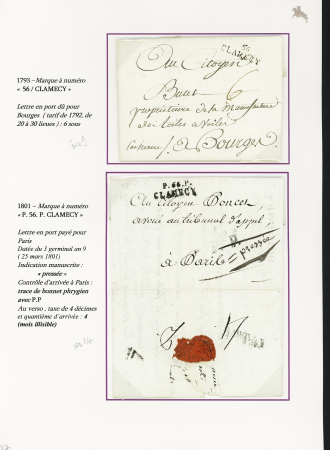 1793 – Marque à numéro
« 56 / CLAMECY »
Lettre en port dû pour
Bourges ( tarif de 1792, de
20 à 30 lieues ) : 6 sous
56
CLAMECY
Au Citoyen
Butet 6
propriétaire de la Manufacture
des toiles a Voiles
a Bourges
1801 – Marque à numéro
« P. 56. P. CLAMECY »
Lettre en port payé pour
Paris
Datée du 3 germinal an 9
( 25 mars 1801)
Indication manuscrite :
« pressée »
Contrôle d'arrivée à Paris :
trace de bonnet phrygien
avec P.P
Au verso , taxe de 4 décimes
et quantième d'arrivée : 4
(mois illisible)
P. 56. P.
CLAMECY
Au Citoyen Poncet
avoué au tribunal d'appel,
pressée
à Paris